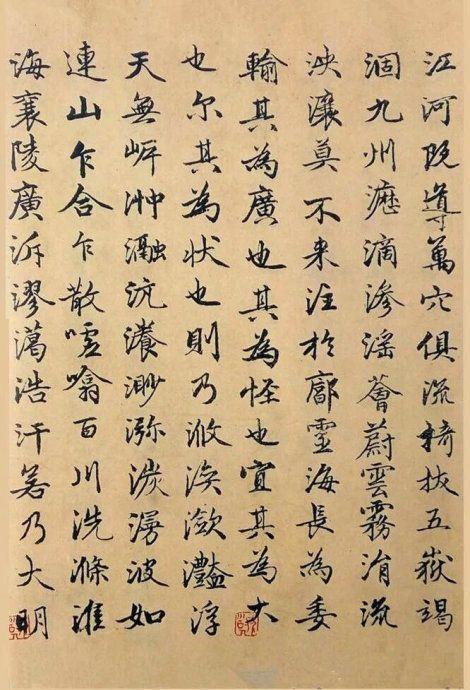 江河既導萬穴俱流掎拔五嶽竭
涸九州瀝滴滲淫薈蔚雲霧涓流
泱瀼莫不来注於廓靈海長為委
輸其為廣也其為怪也宜其為大
也尔其為狀也則乃浟湙瀲灩浮
天無岸沖瀜沆瀁渺㳽湠漫波如
連山乍合乍散嘘噏百川洗滌淮
海襄陵廣泝浩汗若乃大明